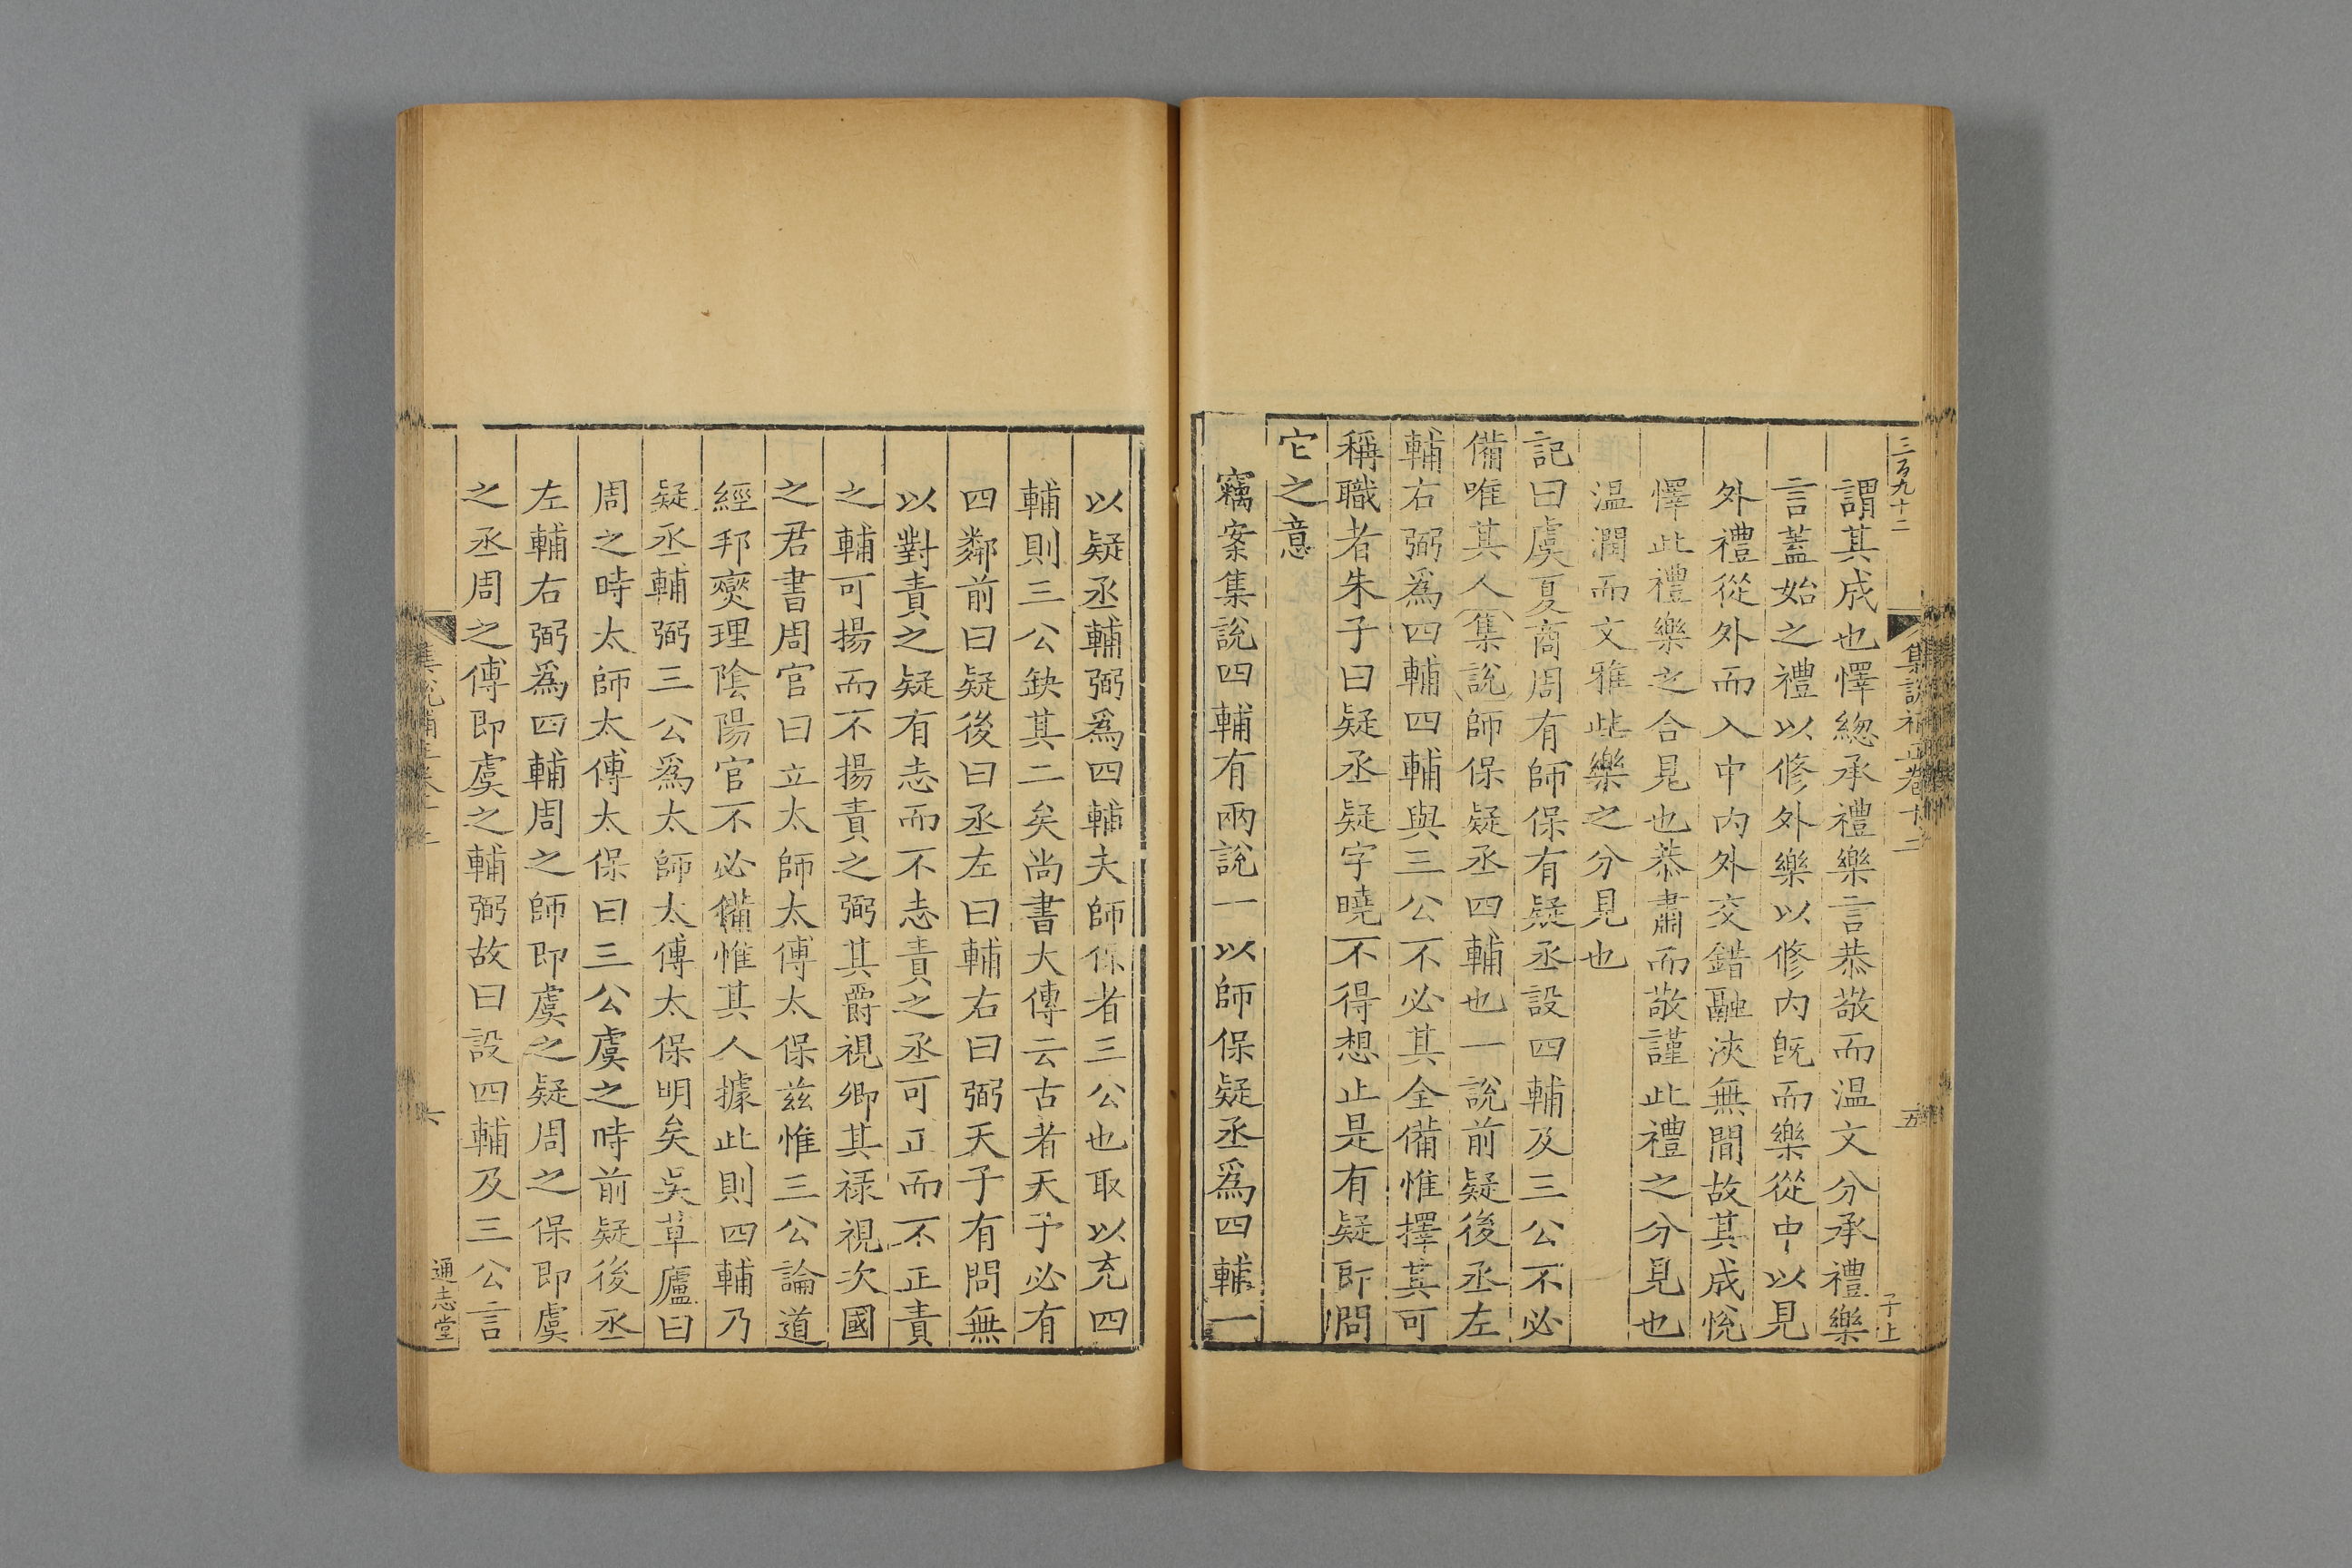 三百九十二
集說補正卷十二
五
子上
謂其成也懌緫承禮樂言恭敬而温文分承禮樂
言蓋始之禮以修外樂以修内旣而樂從中以見
外禮從外而入中内外交錯融浹無間故其成恱
懌此禮樂之合見也恭肅而敬謹此禮之分見也
温潤而文雅此樂之分見也
記曰虞夏商周有師保有疑丞設四輔及三公不必
備唯其人(集說)師保疑丞四輔也一說前疑後丞左
輔右弼爲四輔四輔與三公不必其全備惟擇其可
稱職者朱子曰疑丞疑字曉不得想止是有疑即問
它之意
竊案集說四輔有兩說一以師保疑丞爲四輔一
以疑丞輔弼爲四輔夫師保者三公也取以充四
輔則三公缺其二矣尚書大傳云古者天子必有
四鄰前曰疑後曰丞左曰輔右曰弼天子有問無
以對責之疑有志而不志責之丞可正而不正責
之輔可揚而不揚責之弼其爵視卿其禄視次國
之君書周官曰立太師太傅太保兹惟三公論道
經邦爕理陰陽官不必備惟其人據此則四輔乃
疑丞輔弼三公爲太師太傅太保明矣吴草廬曰
周之時太師太傅太保曰三公虞之時前疑後丞
左輔右弼爲四輔周之師即虞之疑周之保即虞
之丞周之傅即虞之輔弼故曰設四輔及三公言
集說補正卷十二
六
通志堂